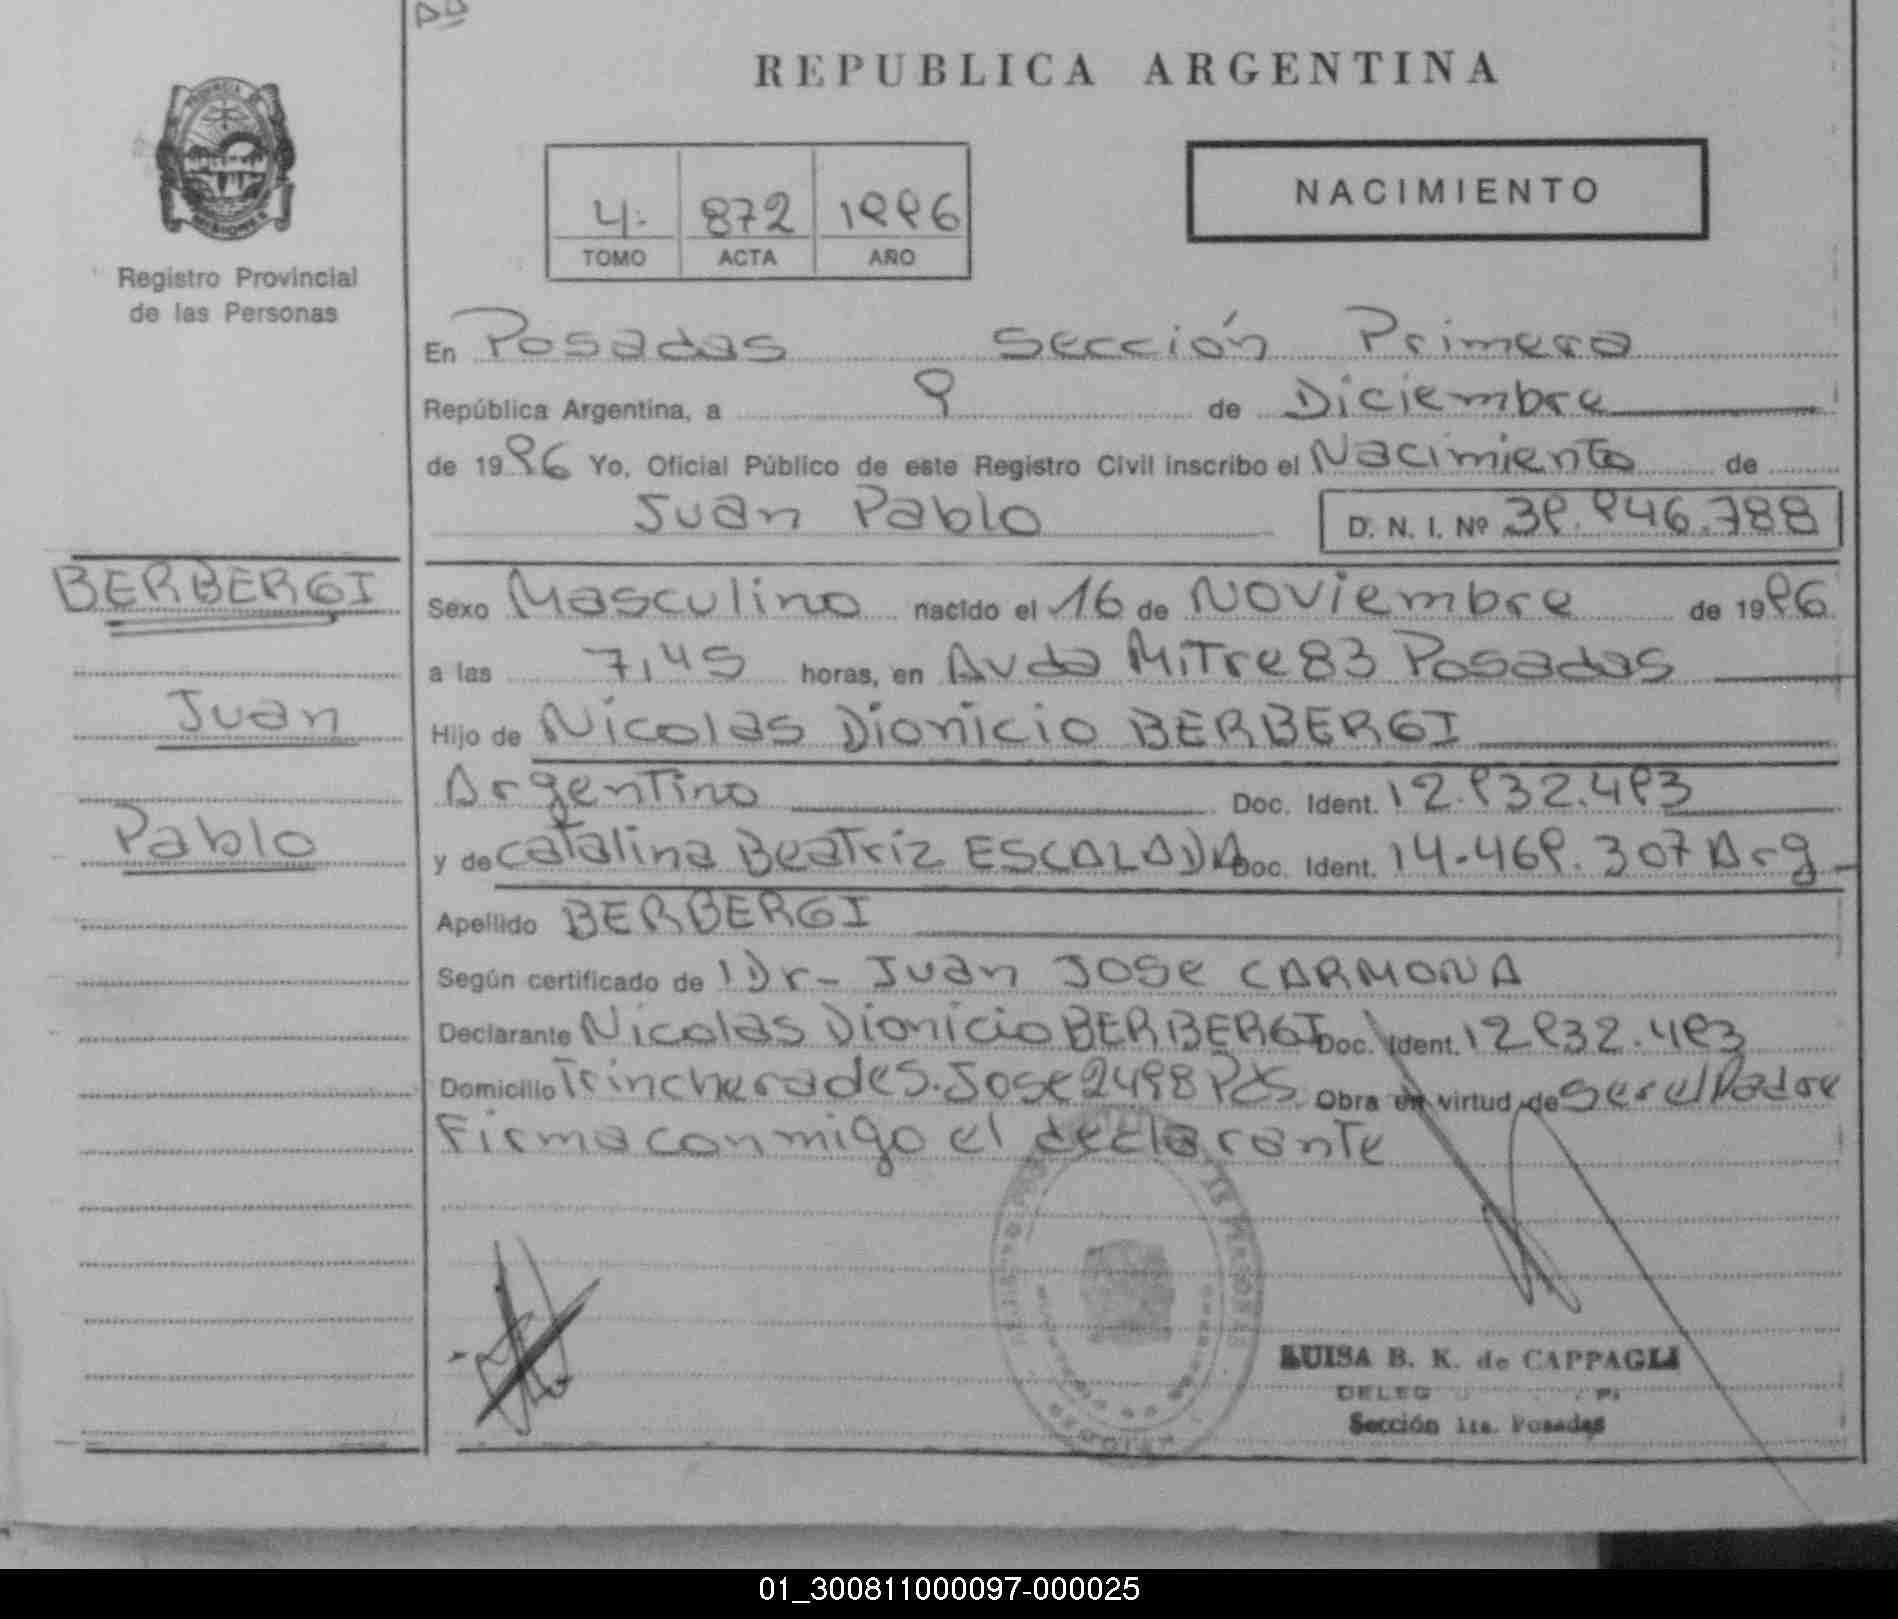 REPUBLICA ARGENTINA
NACIMIENTO
4. 872 1996
TOMO ACTA AÑO
Registro Provincial
de las Personas
En Posadas Sección Primera
República Argentina, a 9 de Diciembre
de 1996 Yo, Oficial Público de este Registro Civil inscribo el Nacimiento de
Juan Pablo D. N. I. Nº 39.946.788
BERBERGI
Juan
Pablo
Sexo Masculino nacido el 16 de Noviembre de 1996
a las 7,45 horas, en Avda Mitre 83 Posadas
Hijo de Nicolas Dionicio BERBERGI
Argentino Doc. Ident. 12.932.493
y de Catalina Beatriz ESCALADA Doc. Ident. 14.469.307 Arg
Apellido BERBERGI
Según certificado de Dr- Juan Jose CARMONA
Declarante Nicolas Dionicio BERBERGI Doc. Ident. 12932.493
Domicilio Trincherade S. Jose 2498 Pds Obra en virtud de ser el Padre
Firma conmigo el declarante
LUISA B. K. de CAPPAGLI
DELEG
Sección 1ra. Posadas
01_300811000097-000025